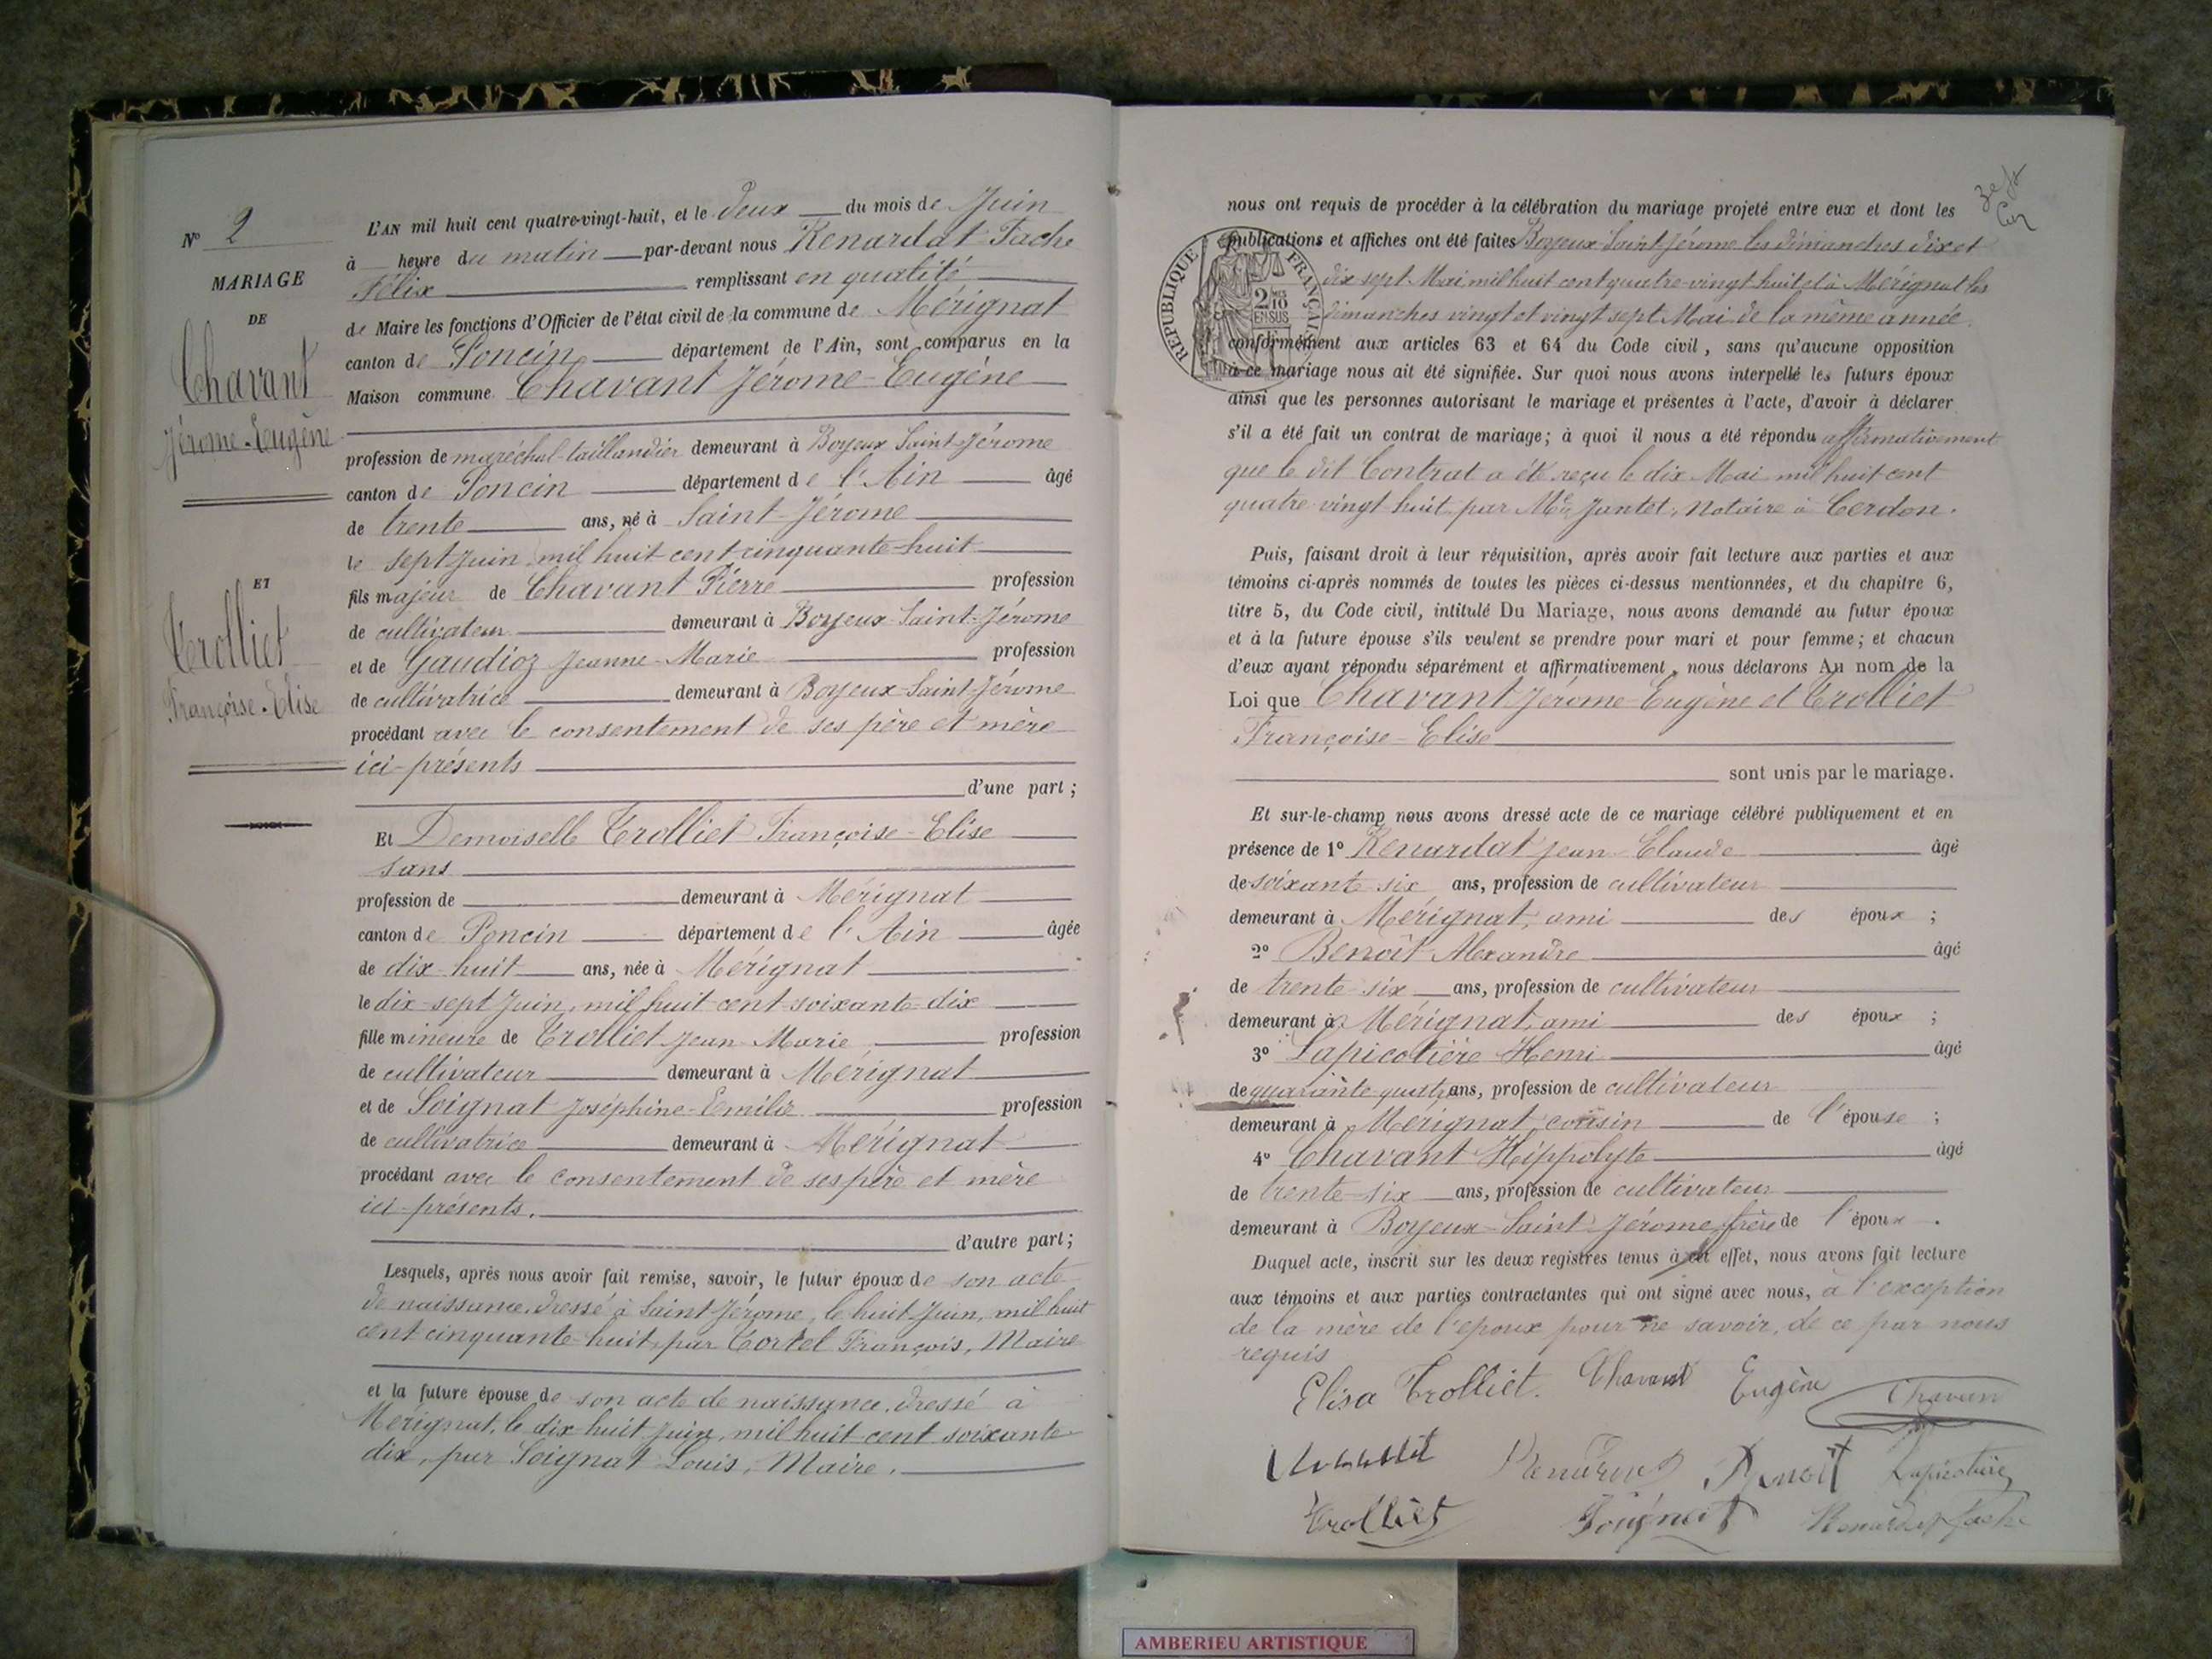 N° 2
MARIAGE
DE
Chavant
Jérome-Eugène
ET
Trolliet
Françoise-Elise
L'AN mil huit cent quatre-vingt-huit, et le deux du mois de Juin
à heure du matin par-devant nous Renardat-Fache
Félix remplissant en qualité
de Maire les fonctions d'Officier de l'état civil de la commune de Mérignat
canton de Poncin département de l'Ain, sont comparus en la
Maison commune Chavant Jérome-Eugène
profession de maréchal-taillandier demeurant à Boyeux-Saint-Jérome
canton de Poncin département de l'Ain âgé
de trente ans, né à Saint-Jérome
le sept Juin mil huit cent cinquante-huit
fils majeur de Chavant Pierre profession
de cultivateur demeurant à Boyeux-Saint-Jérome
et de Gaudioz Jeanne-Marie profession
de cultivatrice demeurant à Boyeux-Saint-Jérome
procédant avec le consentement de ses père et mère
ici-présents
d'une part ;
Et Demoiselle Trolliet Françoise-Elise
sans
profession de demeurant à Mérignat
canton de Poncin département de l'Ain âgée
de dix-huit ans, née à Mérignat
le dix-sept Juin, mil huit cent soixante-dix
fille mineure de Trolliet Jean-Marie profession
de cultivateur demeurant à Mérignat
et de Soignat Joséphine-Emilie profession
de cultivatrice demeurant à Mérignat
procédant avec le consentement de ses père et mère
ici-présents.
d'autre part ;
Lesquels, après nous avoir fait remise, savoir, le futur époux de son acte
de naissance, dressé à Saint-Jérome, le huit Juin, mil huit
cent cinquante-huit, par Tortel François, Maire
et la future épouse de son acte de naissance, dressé à
Mérignat, le dix-huit Juin, mil huit cent soixante-
dix, par Soignat Louis, Maire.
nous ont requis de procéder à la célébration du mariage projeté entre eux et dont les
publications et affiches ont été faites Boyeux-Saint-Jérome les dimanches dix et
dix-sept Mai mil huit cent quatre-vingt huit et à Mérignat les
dimanches vingt et vingt sept Mai de la même année
conformément aux articles 63 et 64 du Code civil, sans qu'aucune opposition
à ce mariage nous ait été signifiée. Sur quoi nous avons interpellé les futurs époux
ainsi que les personnes autorisant le mariage et présentes à l'acte, d'avoir à déclarer
s'il a été fait un contrat de mariage; à quoi il nous a été répondu affirmativement
que le dit Contrat a été reçu le dix Mai mil huit cent
quatre-vingt huit par Me Jantet, Notaire à Cerdon.
RÉPUBLIQUE FRANÇAISE
2/10
EN SUS
Puis, faisant droit à leur réquisition, après avoir fait lecture aux parties et aux
témoins ci-après nommés de toutes les pièces ci-dessus mentionnées, et du chapitre 6,
titre 5, du Code civil, intitulé Du Mariage, nous avons demandé au futur époux
et à la future épouse s'ils veulent se prendre pour mari et pour femme; et chacun
d'eux ayant répondu séparément et affirmativement, nous déclarons Au nom de la
Loi que Chavant Jérome-Eugène et Trolliet
Françoise-Elise
sont unis par le mariage.
Et sur-le-champ nous avons dressé acte de ce mariage célébré publiquement et en
présence de 1° Renardat Jean-Claude âgé
de soixante six ans, profession de cultivateur
demeurant à Mérignat, ami des époux ;
2° Benoît Alexandre âgé
de trente-six ans, profession de cultivateur
demeurant à Mérignat, ami des époux ;
3° Lapicotière Henri âgé
de quarante-quatre ans, profession de cultivateur
demeurant à Mérignat, cousin de l'épouse ;
4° Chavant Hippolyte âgé
de trente-six ans, profession de cultivateur
demeurant à Boyeux-Saint-Jérome, frère de l'époux .
Duquel acte, inscrit sur les deux registres tenus à cet effet, nous avons fait lecture
aux témoins et aux parties contractantes qui ont signé avec nous, à l'exception
de la mère de l'époux pour ne savoir, de ce par nous
requis
Elisa Trolliet. Chavant Eugène Chavan
Renardat Benoit Lapicotière
Trolliet Soignat Renardat Fache
AMBERIEU ARTISTIQUE